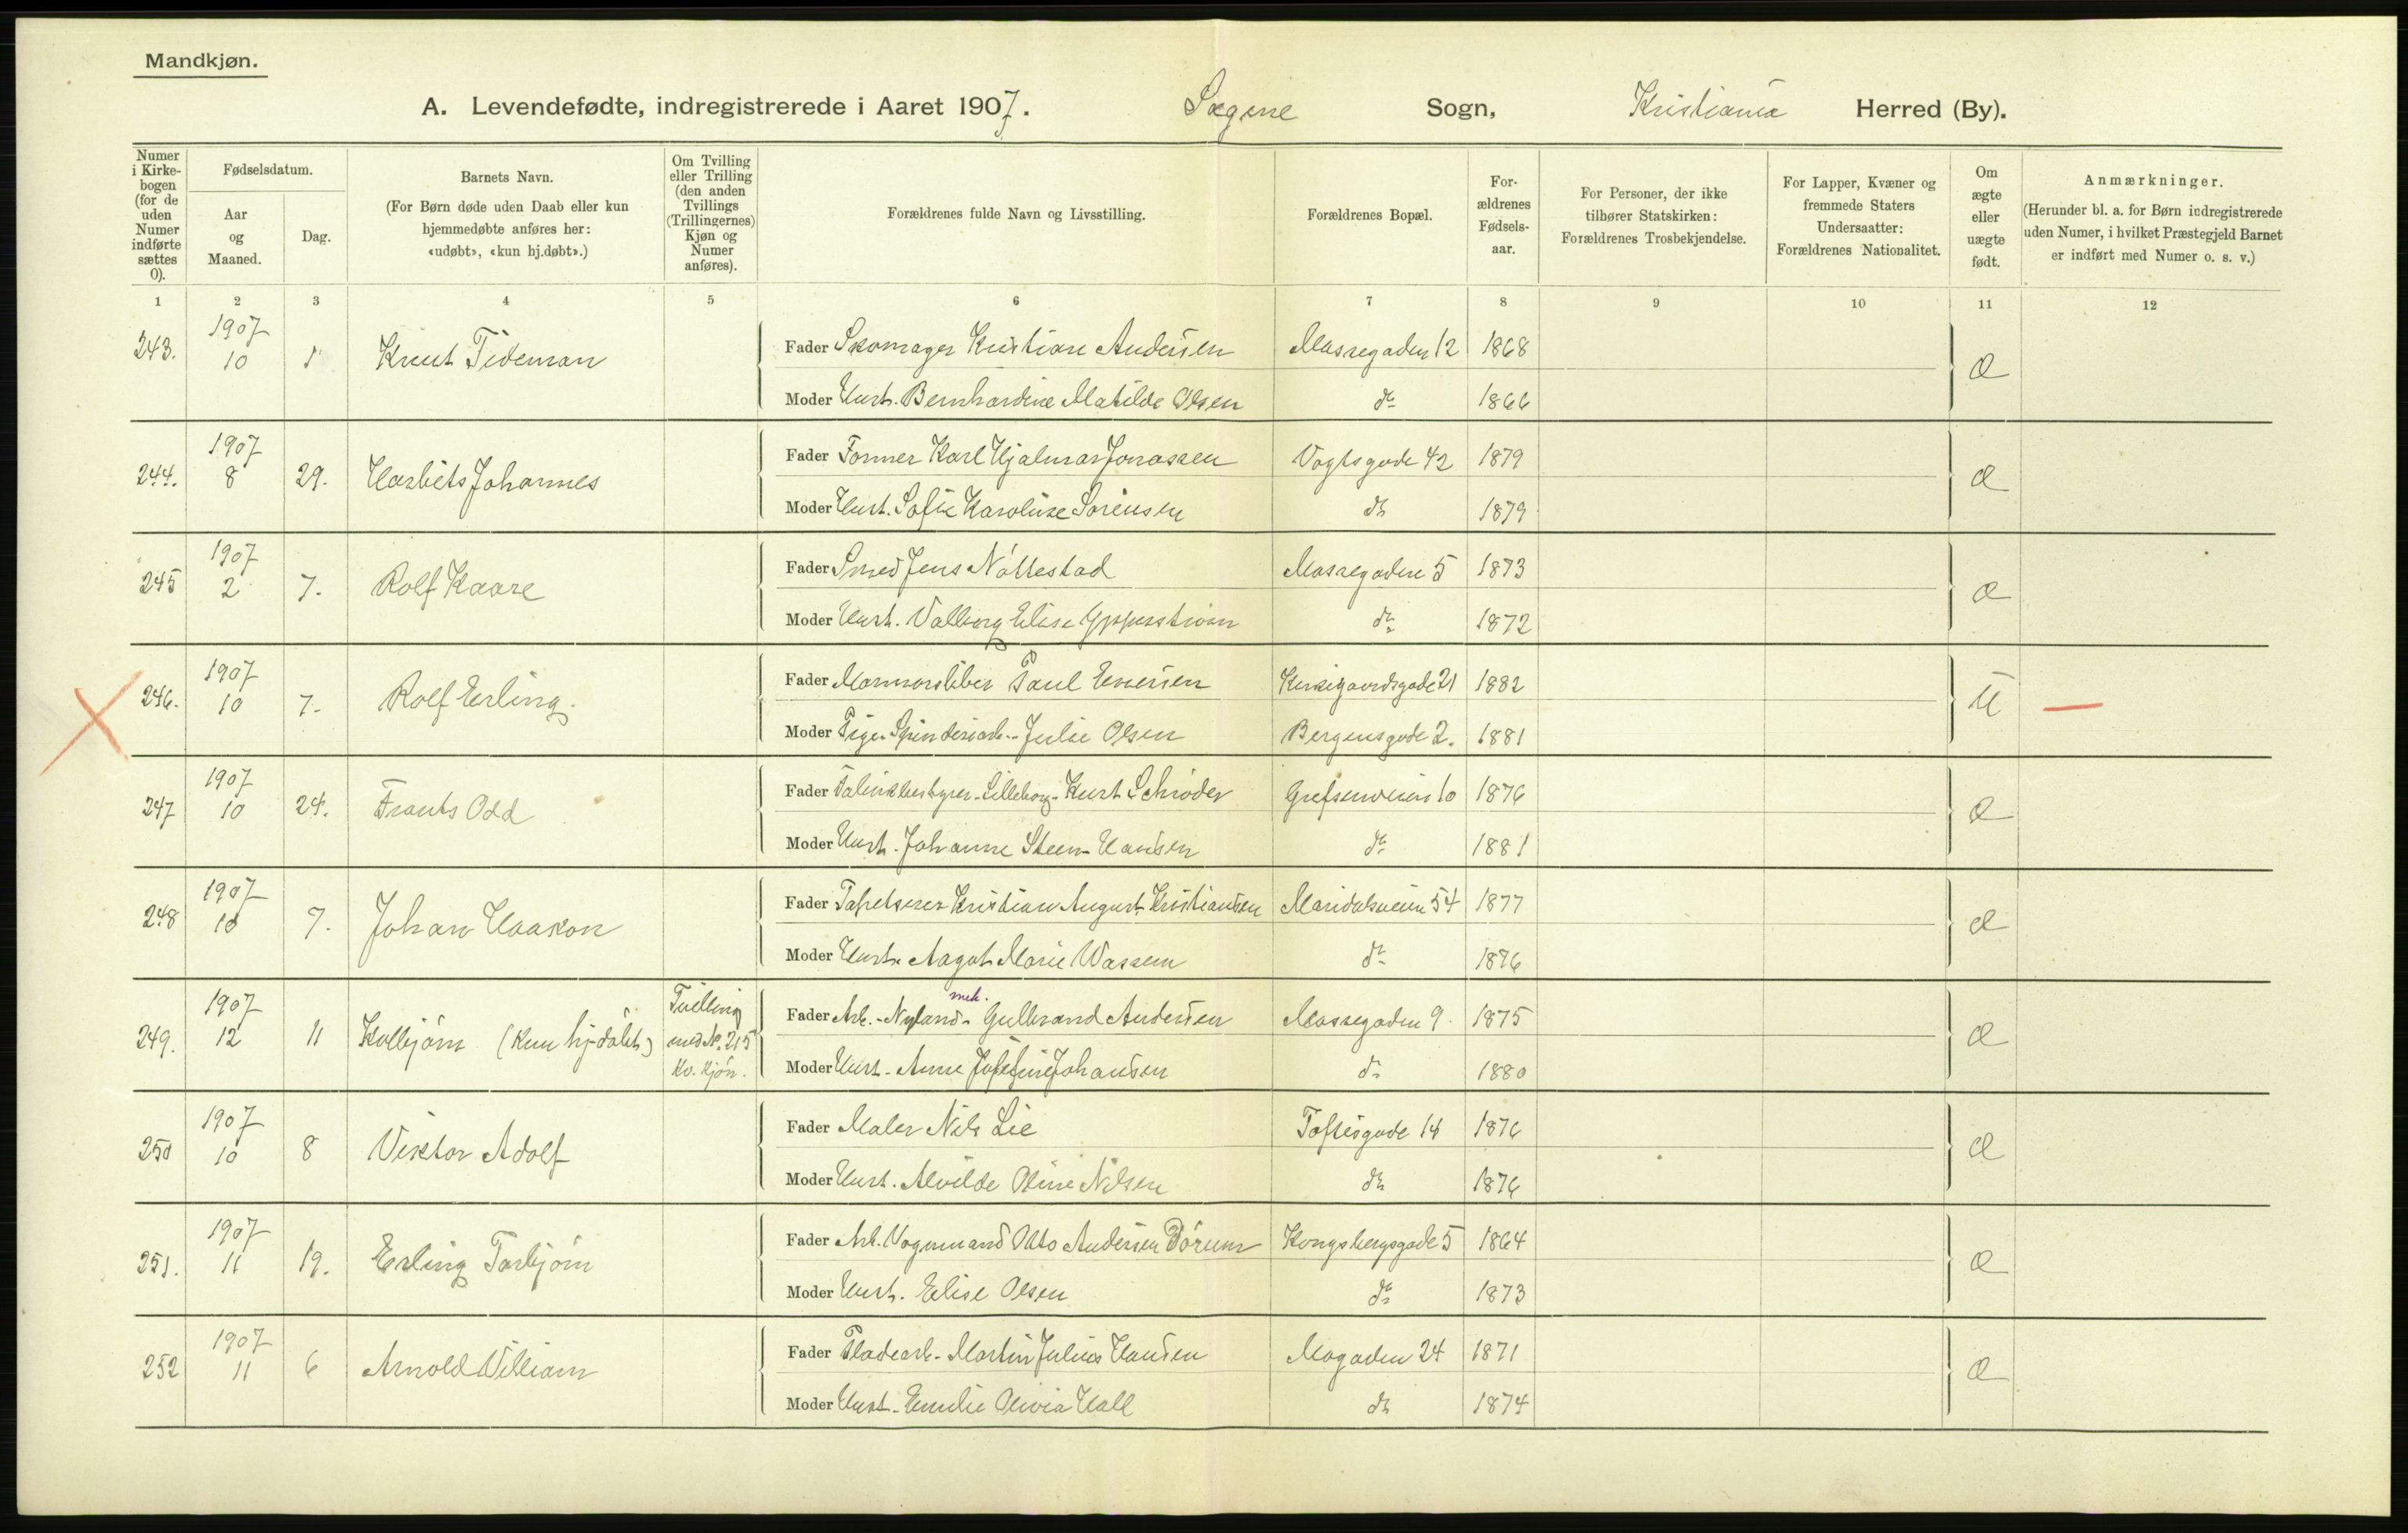 Mandkjøn.
A. Levendefødte, indregistrerede i Aaret 1907. Sagene Sogn, Kristiania Herred (By).
Numer i Kirke-bogen (for de uden Numer indførte sættes 0).
Fødselsdatum.
Aar og Maaned.
Dag.
Barnets Navn.
(For Børn døde uden Daab eller kun hjemmedøbte anføres her: «udøbt», «kun hj.døbt».)
Om Tvilling eller Trilling (den anden Tvillings (Trillingernes) Kjøn og Numer anføres).
Forældrenes fulde Navn og Livsstilling.
Forældrenes Bopæl.
For-ældrenes Fødsels-aar.
For Personer, der ikke tilhører Statskirken: Forældrenes Trosbekjendelse.
For Lapper, Kvæner og fremmede Staters Undersaatter: Forældrenes Nationalitet.
Om ægte eller uægte født.
Anmærkninger.
(Herunder bl. a. for Børn indregistrerede uden Numer, i hvilket Præstegjeld Barnet er indført med Numer o. s. v.)
1 2 3 4 5 6 7 8 9 10 11 12
243. 1907 10 1 Knut Tideman
Fader Skomager Kristian Andersen Mossegaden 12 1868 Æ
Moder Hust. Bernhardine Matilde Olsen do 1866
244. 1907 8 29. Harbits Johannes
Fader Former Karl Hjalmar Jonassen Vogtsgade 42 1879 Æ
Moder Hust. Sofie Karoline Sørensen do 1879
245 1907 2 7. Rolf Kaare
Fader Smed Jens Nøttestad Mossegaden 5 1873 Æ
Moder Hust. Valborg Elise do 1872
246. 1907 10 7. Rolf Erling.
Fader Marmorsliber Paul Enersen Kirkegaardsgade 21 1882 U —
Moder Pige. Spinderiarb. Julie Olsen Bergensgade 2. 1881
247 1907 10 24. Frants Odd
Fader Fabrikbestyrer - Lilleborg - Kurt Schrøder Grefsenveien 10 1876 Æ
Moder Hust. Johanne Steen-Hansen do 1881
248 1907 10 7. Johan Haakon
Fader Tapetserer Kristian August Kristiansen Maridalsveien 54 1877 Æ
Moder Hust. Aagot Marie Wassem do 1876
249. 1907 12 11 Kolbjørn (kun hj.døbt) Tvilling med No. 215 Kv. Kjøn.
Fader Arb. - Nyland mek. - Gulbrand Andersen Mossegaden 9. 1875 Æ
Moder Hust. Anne Josefine Johansen do 1880
250 1907 10 8 Viktor Adolf
Fader Maler Nils Lie Toftesgade 14 1876 Æ
Moder Hust. Alvilde Oline Nilsen do 1876
251. 1907 11 19. Erling Torbjørn
Fader Arb. Vognmand Otto Andersen Børum Kongsbergsgade 5 1864 Æ
Moder Hust. Elise Olsen do 1873
252 1907 11 6 Arnold William
Fader Pladearb. Martin Julius Hansen Mogaden 24 1871 Æ
Moder Hust. Emilie Olivia Hall do 1874